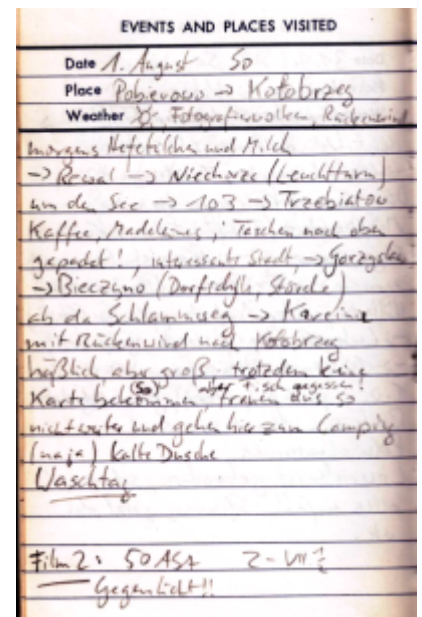 EVENTS AND PLACES VISITED
Date 1. August So
Place Pobierowo → Kołobrzeg
Weather Fotografierwolken, Rückenwind
morgens Hefeteilchen und Milch
→ Rewal → Niechorze (Leuchtturm)
um den See → 103 → Trzebiatow
Kaffee, Madeleines, Taschen nach oben
gepackt!, interessante Stadt, →
→ Bieczyno (Dorfidylle, Störche)
ab da Schlammweg → Karcino
mit Rückenwind nach Kołobrzeg
häßlich aber groß. trotzdem keine
Karte bekommen (So) aber Fisch gegessen!
trauen uns so
nicht weiter und gehen hier zum Camping
(naja) kalte Dusche
Waschtag
Film 2: 50 ASA 2-VII
Gegenlicht!!